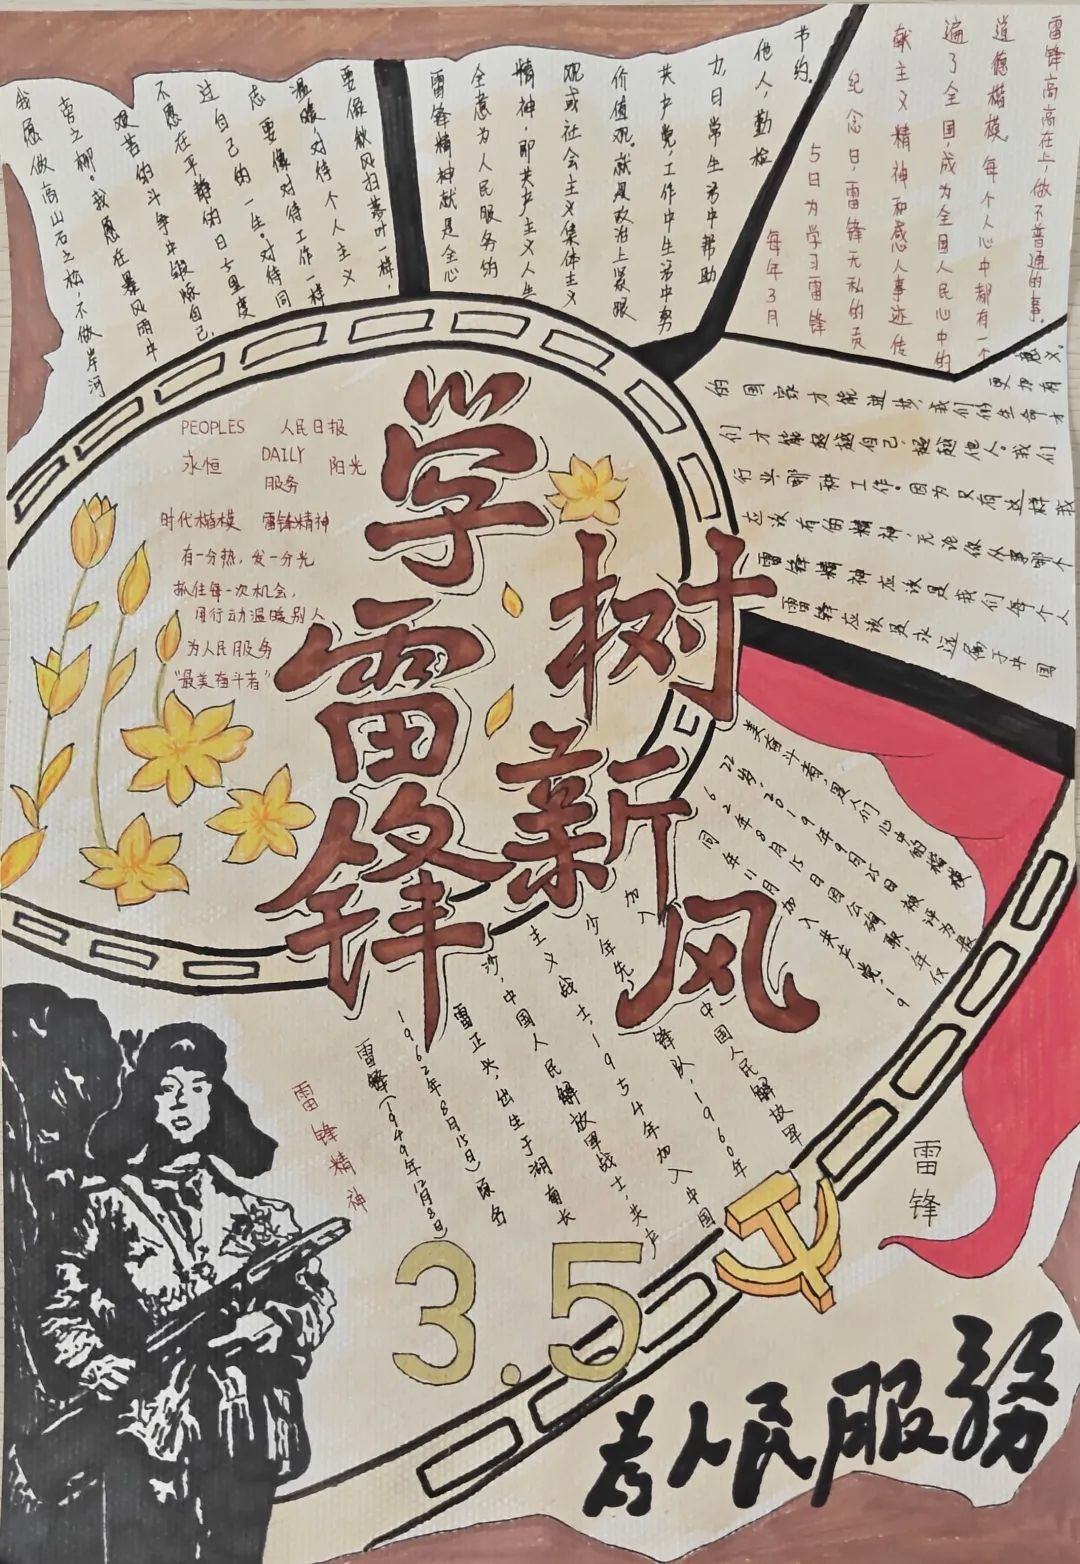 我愿做高山石之松,不做岸河
旁之柳。我愿在暴风雨中
艰苦的斗争中锻炼自己,
不愿在平静的日子里度
过自己的一生。对待同
志要像对待工作一样
温暖,对待个人主义
要像秋风扫落叶一样,
雷锋精神献是全心
全意为人民服务的
精神,即共产主义人生
观或社会主义集体主义
价值观。就是政治上紧跟
共产党,工作中生活中努
力,日常生活中帮助
他人,勤俭
节约。
每年3月
5日为学习雷锋
纪念日,雷锋无私的贡
献主义精神和感人事迹传
遍了全国,成为全国人民心中的
道德楷模,每个人心中都有一个
雷锋高高在上,做不普通的事。
雷锋应该是永远属于中国
雷锋精神应该是我们每个人
应该有的精神,无论你从事哪个
行业,哪种工作。因为只有这样我
们才能超越自己,超越他人。我们
的国家才能进步,我们的生命才
更加有
意义。
PEOPLES 人民日报
永恒 DAILY 阳光
服务
时代楷模 雷锋精神
有一分热,发一分光
抓住每一次机会,
用行动温暖别人
为人民服务
"最美奋斗者"
学雷锋
树新风
雷锋精神
雷锋(1940年12月8日
1962年8月15日)原名
雷正兴,出生于湖南长
沙,中国人民解放军战士,共产
主义战士,1954年加入中国
少年先锋队,1960年
加入中国人民解放军
同年11月加入共产党,19
62年8月15日因公殉职,年仅
22岁,2019年9月25日被评为最
美奋斗者,是人们心中的楷模
雷锋
3.5
为人民服務